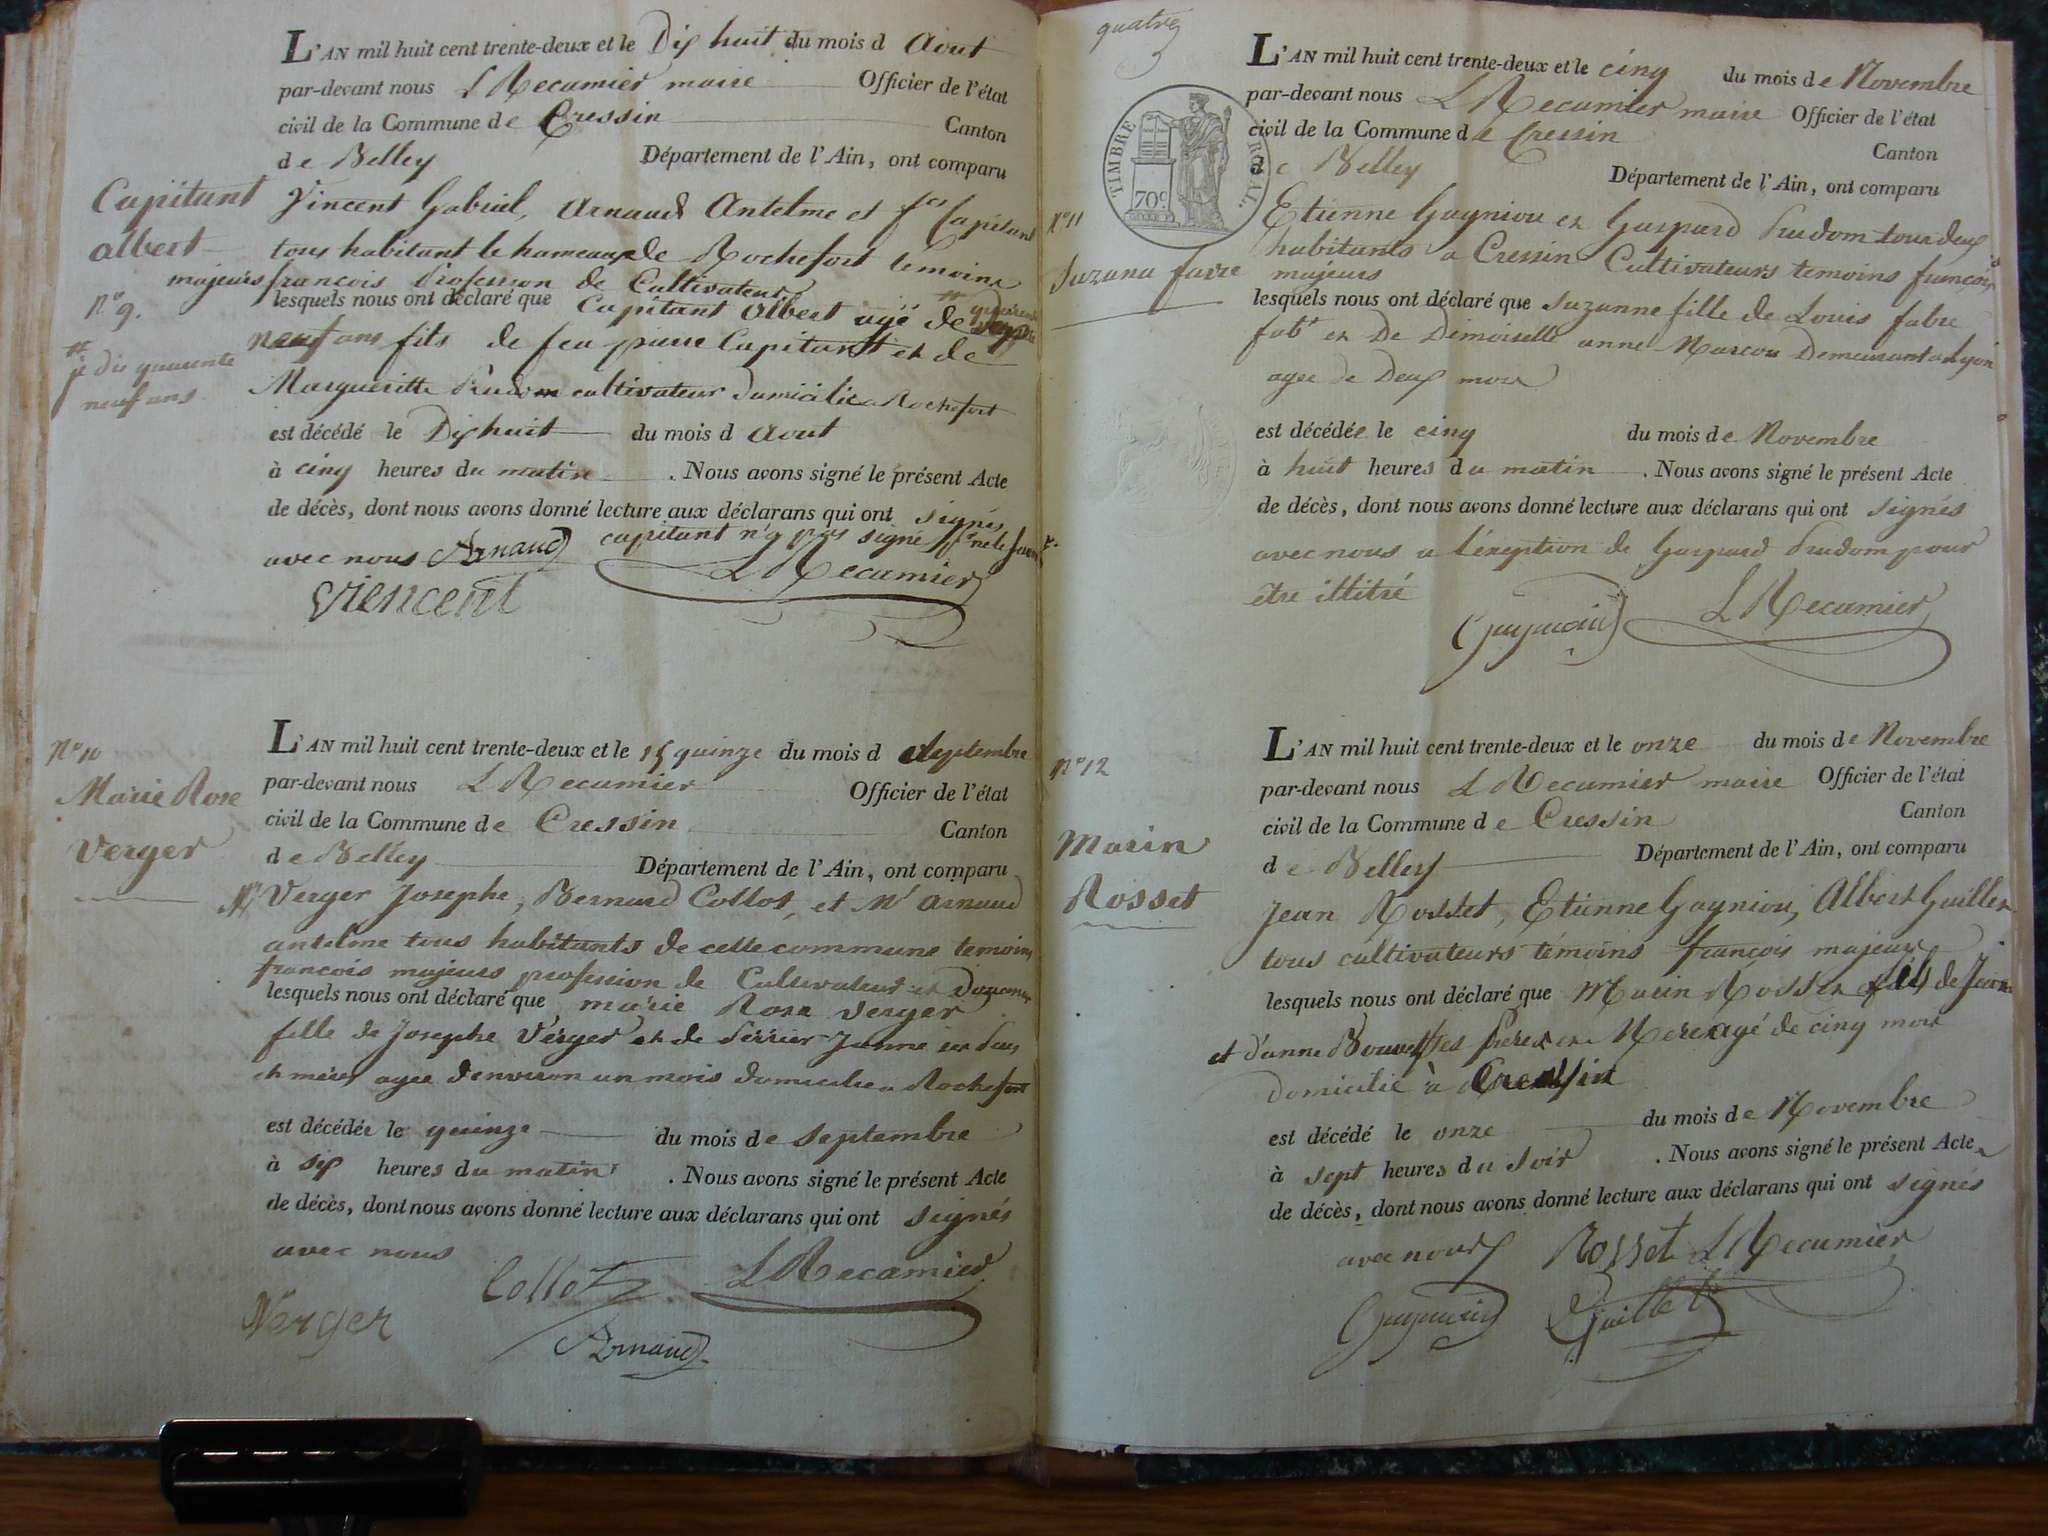 L'AN mil huit cent trente-deux et le Dix huit du mois d Aout
par-devant nous L Recamier maire Officier de l'état
civil de la Commune de Cressin Canton
de Belley Département de l'Ain, ont comparu
Capitant
albert
n° 9.
je dis quarente
neuf ans
Vincent Gabriel, Arnaud Antelme et fçs Capitant
tous habitant le hameaux de Rochefort temoins
majeurs francois Profession de Cultivateur
lesquels nous ont déclaré que Capitant Albert agé de quarente
neuf ans fils de feu pierre Capitant et de
Margueritte Prudom cultivateur domicilié a Rochefort
est décédé le Dix huit du mois d Aout
à cinq heures du matin . Nous avons signé le présent Acte
de décès, dont nous avons donné lecture aux déclarans qui ont signés
avec nous Arnaud capitant n'y pas signé
L Recamier
Viencent
N° 10
Marie Rose
Verger
L'AN mil huit cent trente-deux et le 15 quinze du mois d Septembre
par-devant nous L Recamier Officier de l'état
civil de la Commune de Cressin Canton
de Belley Département de l'Ain, ont comparu
Verger Josephe, Bernard Collot, et Mr Arnaud
antelme tous habitants de cette commune temoins
francois majeurs profession de Cultivateur et Douanier
lesquels nous ont déclaré que marie Rose Verger
fille de Josephe Verger et de Perrier Janne ses Peres
et meres agee d'environ un mois domicilie a Rochefort
est décédée le quinze du mois de Septembre
à six heures du matin . Nous avons signé le présent Acte
de décès, dont nous avons donné lecture aux déclarans qui ont signés
avec nous Collot L Recamier
Verger Arnaud
quatre
TIMBRE ROYAL.
70c.
N° 11
Suzana favre
L'AN mil huit cent trente-deux et le cinq du mois de Novembre
par-devant nous L Recamier maire Officier de l'état
civil de la Commune de Cressin Canton
de Belley Département de l'Ain, ont comparu
Etienne Guyniou et Gaspard Prudom tous deux
habitants a Cressin Cultivateurs temoins francois
majeurs
lesquels nous ont déclaré que Suzanne fille de Louis fabre
fabt et De Demoiselle anne Marcou Demeurant a lyon
agee de Deux mois
est décédée le cinq du mois de Novembre
à huit heures du matin . Nous avons signé le présent Acte
de décès, dont nous avons donné lecture aux déclarans qui ont signés
avec nous a l'éxeption de Gaspard Prudom pour
être illitré
L Recamier
N° 12
Marin
Rosset
L'AN mil huit cent trente-deux et le onze du mois de Novembre
par-devant nous L Recamier maire Officier de l'état
civil de la Commune de Cressin Canton
de Belley Département de l'Ain, ont comparu
Jean Rosset, Etienne Goyniou, Albert Guillet
tous cultivateurs témoins francois majeurs
lesquels nous ont déclaré que Marin Rosset fils de Jean
et d'anne Bouvet ses Peres et Mere agé de cinq mois
domicilié à Cressin
est décédé le onze du mois de Novembre
à sept heures du soir . Nous avons signé le présent Acte
de décès, dont nous avons donné lecture aux déclarans qui ont signés
avec nous Rosset L Recamier
Guillet